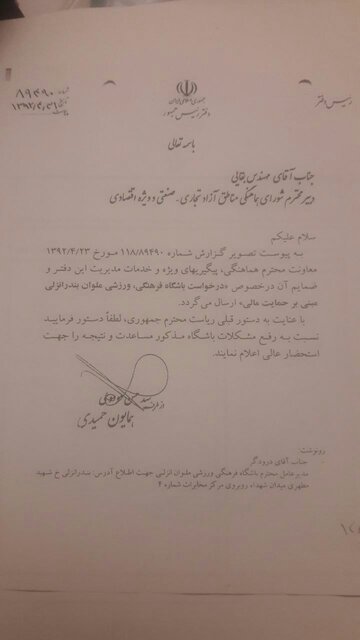 رئیس دفتر
جمهوری اسلامی ایران
دفتر رئیس جمهور
شماره ۸۹۴۹۰
تاریخ ۱۳۹۲/۴/۳۱
پیوست
باسمه تعالی
جناب آقای مهندس بقایی
دبیر محترم شورای هماهنگی مناطق آزاد تجاری - صنعتی و ویژه اقتصادی
سلام علیکم
به پیوست تصویر گزارش شماره ۱۱۸/۸۹۴۹۰ مورخ ۱۳۹۲/۴/۲۳
معاونت محترم هماهنگی، پیگیریهای ویژه و خدمات مدیریت این دفتر و
ضمایم آن درخصوص «درخواست باشگاه فرهنگی، ورزشی ملوان بندرانزلی
مبنی بر حمایت مالی» ارسال می گردد.
با عنایت به دستور قبلی ریاست محترم جمهوری، لطفاً دستور فرمایید
نسبت به رفع مشکلات باشگاه مذکور مساعدت و نتیجه را جهت
استحضار عالی اعلام نمایند.
از طرف
همایون حمیدی
رونوشت:
جناب آقای درودگر
مدیرعامل محترم باشگاه فرهنگی ورزشی ملوان انزلی جهت اطلاع آدرس: بندرانزلی خ شهید
مطهری میدان شهداء روبروی مرکز مخابرات شماره ۴